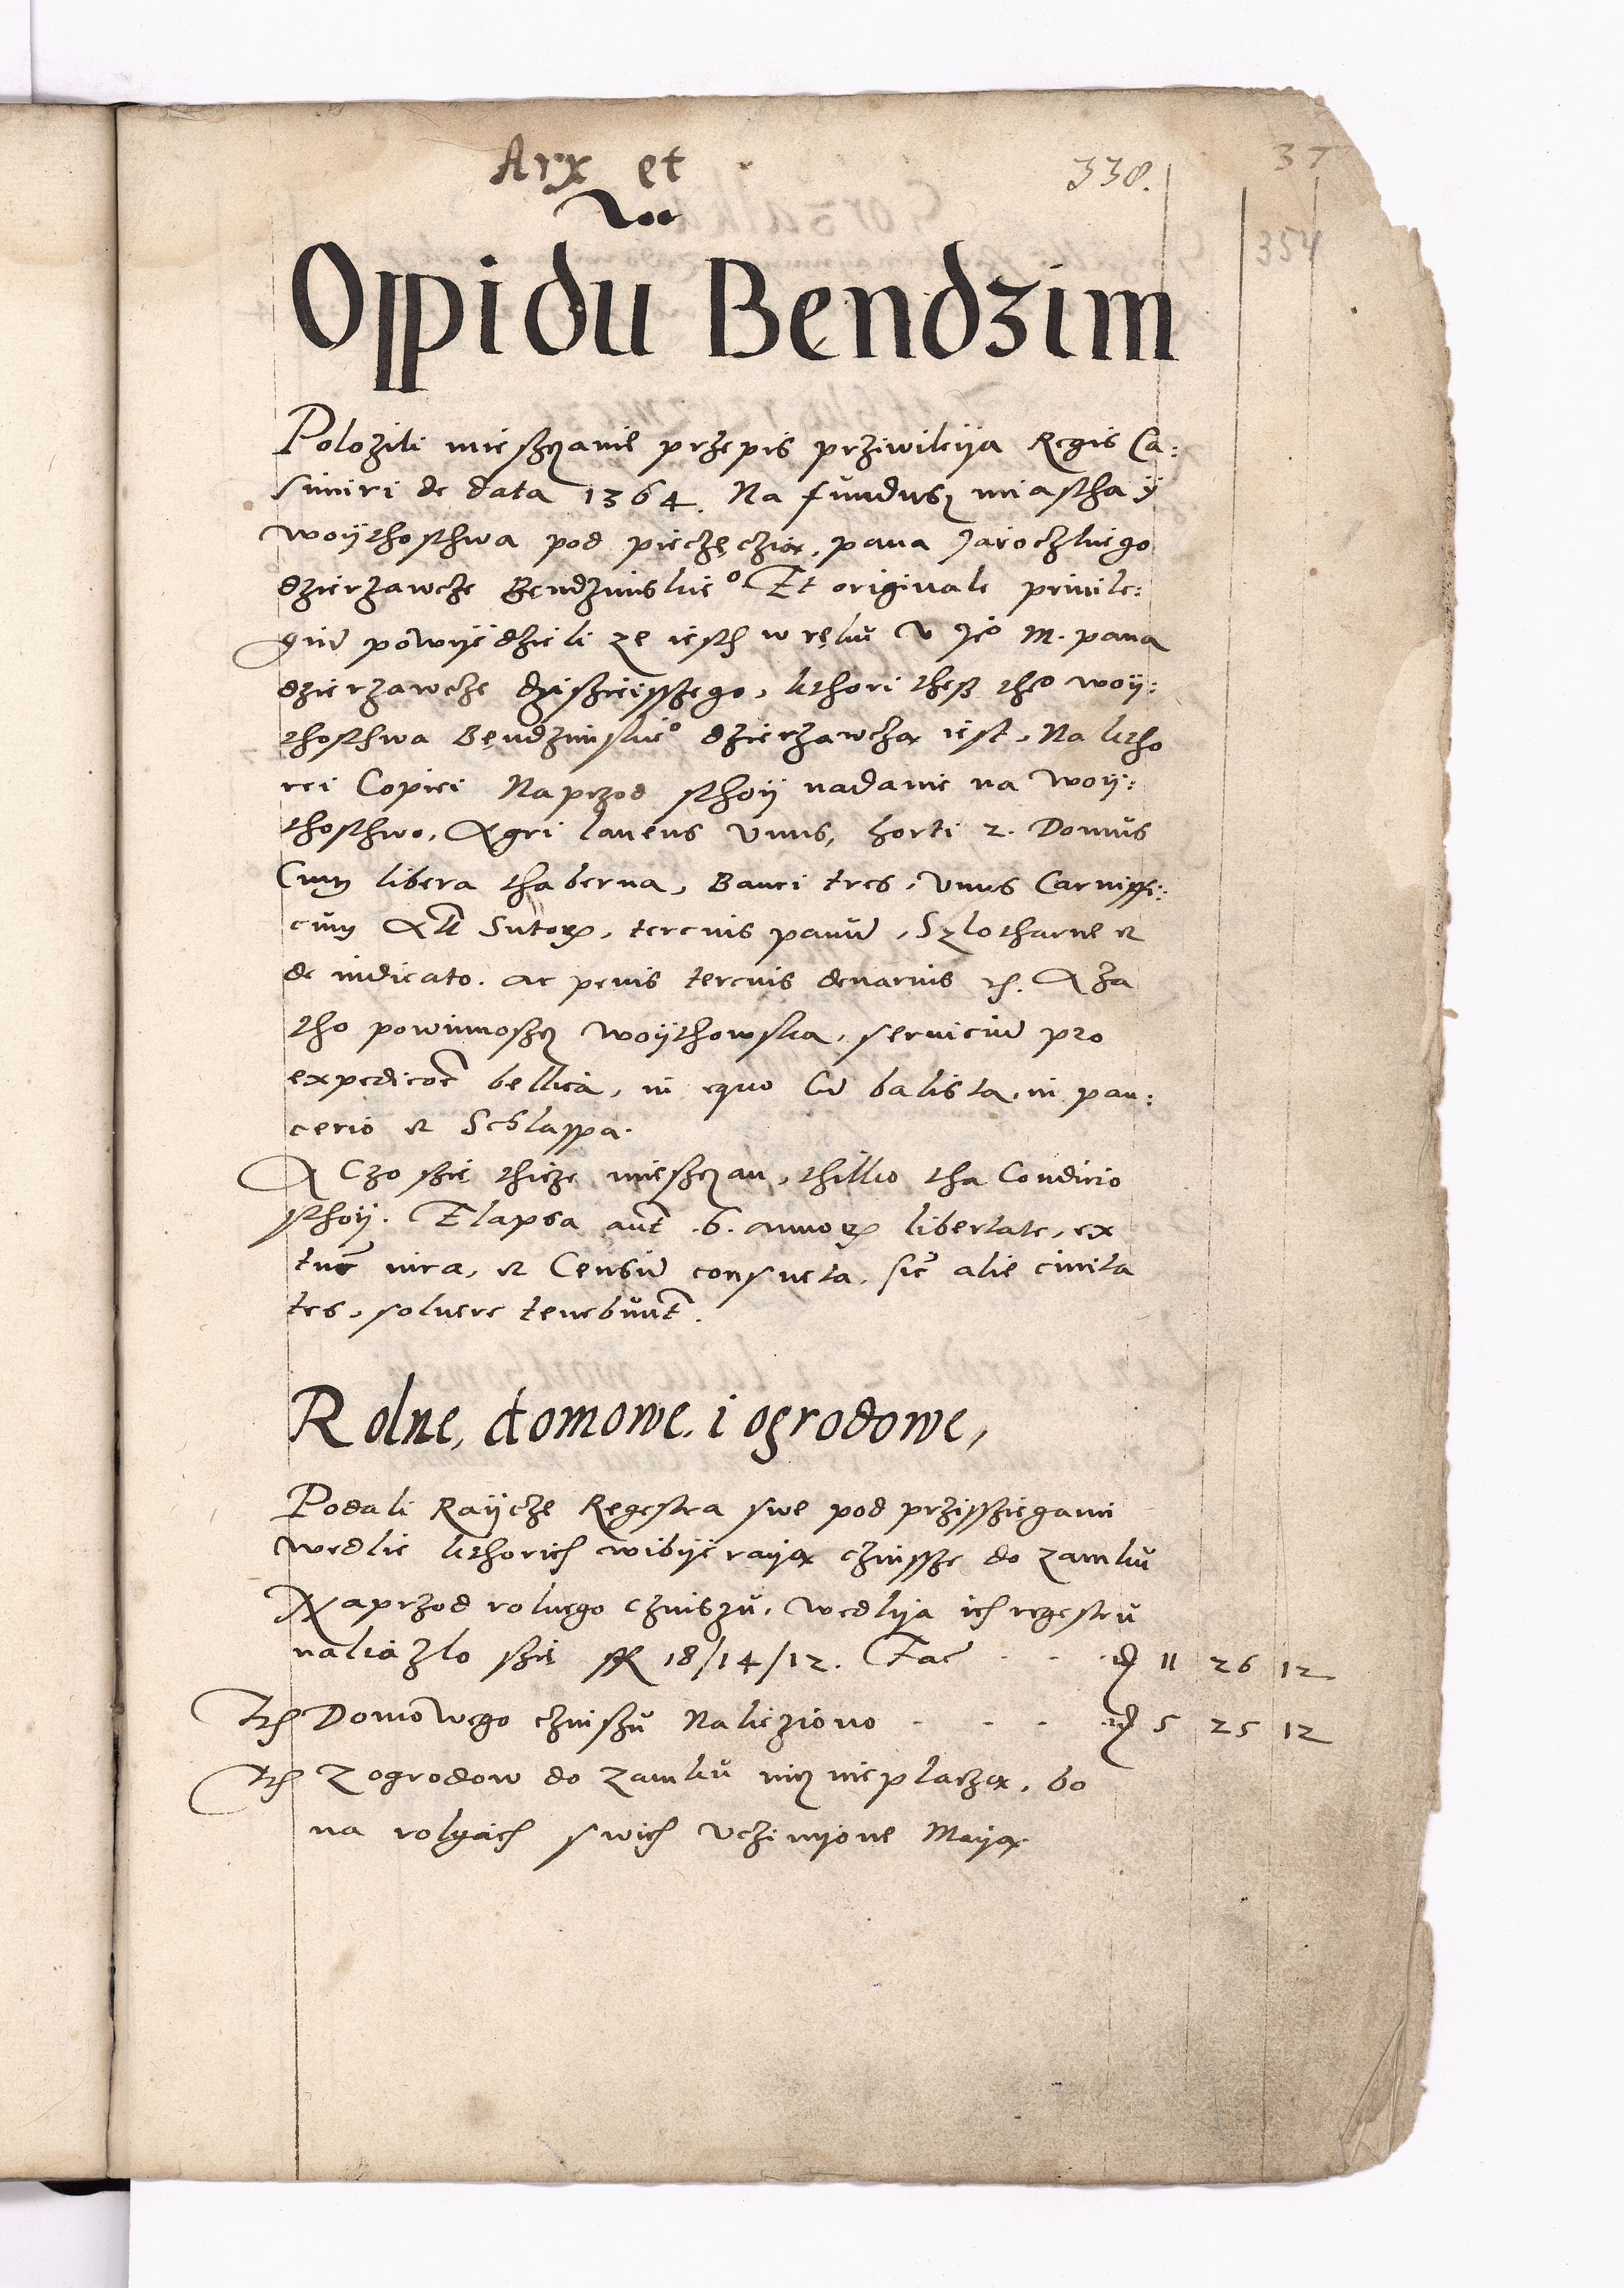 Arx et
338.
37
354
Oppidū Bendzim
Polozili mieſzczanie przepis prziwileija Regis Ca:
simiri de data 1364. Na fundusz miastha ÿ
woÿthosthwa pod pieczęczią, pana Jaroczkiego
dzierzawcze Bendzinskie° Et originale priuile:
giū powÿedzieli ze iesth w ręku v Je° M. pana
dzierzawcze dzisieisszego, kthori thesz the° woÿ:
thosthwa Bendzinskie° dzierzawczą iest, Na ktho
rei Copiei Naprzod sthoÿ nadanie na woÿ:
thosthwo, Agri laneus vnus, horti 2. Domus
Cum libera thaberna, Banci tres, vnus Carniffi:
cum Sutorʒ, tercius panū, Szlotharne et
de iudicato. ac penis tercius denarius A za
tho powinnoscz woÿthowska, seruiciū pro
expedicōe bellica, in equo Cū balista, in pan:
cerio et Schlappa.
A Czo sie thicze mieſzczan, thilko tha Condicio
sthoÿ. Elapsa aūt .6. annorʒ libertate, ex
tūc iura, et Censū consueta, sic alie ciuita
tes, soluere tenebūnt.
Rolne, domowe, i ogrodowe,
Podali Raÿcze Regestra swe pod prziſſziegami
wedlie kthorich wibÿeraią czinſſze do zamku
Naprzod rolnego czinszu, wedlÿa ich regestru
naliazlo szie 18/14/12. Fac̄ 11 26 12
Ith Domowego czinſzu Nalicziono 5 25 12
Ith Z ogrodow do zamku nicz nieplaczą, bo
na rolyach swich vczinÿone Maÿą